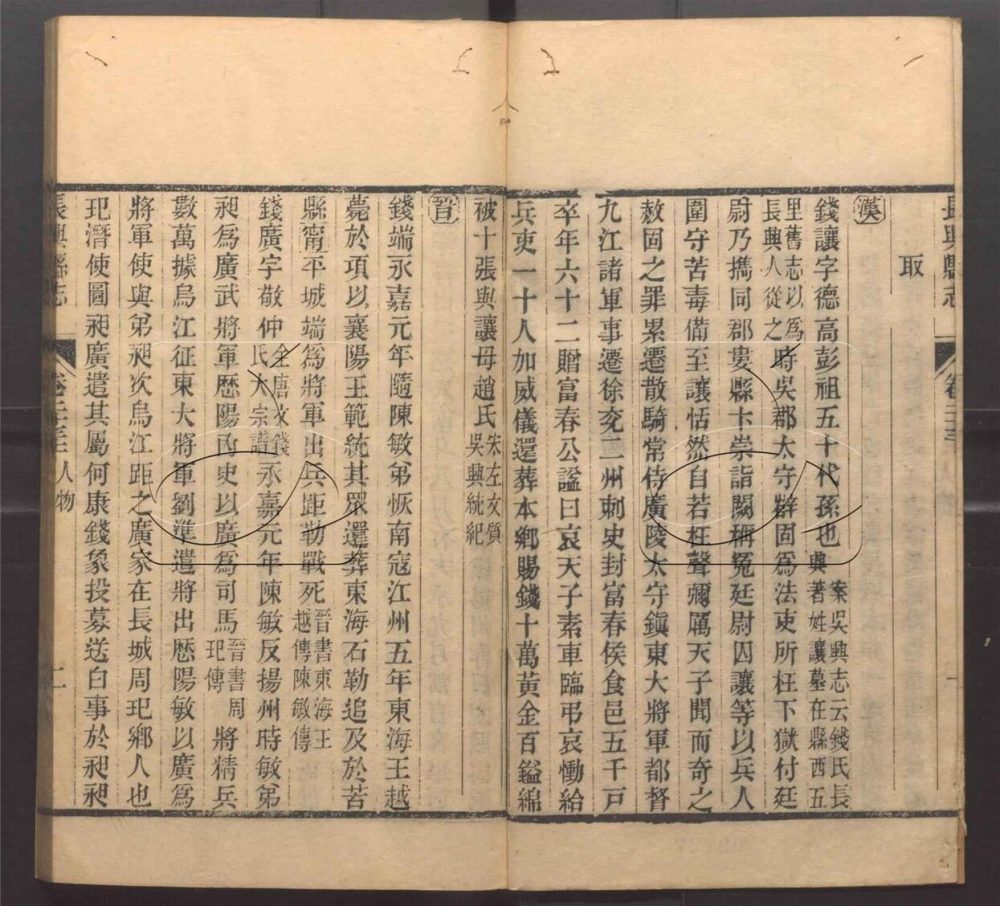 長興縣志 卷二十三 人物 一
取
漢
錢讓字德高彭祖五十代孫也案吳興志云錢氏長興著姓讓墓在縣西五
里舊志以為長興人從之時吳郡太守薛固為法吏所枉下獄付廷
尉乃擕同郡婁縣卞崇詣闕稱冤廷尉囚讓等以兵人
圍守苦毒備至讓恬然自若枉聲彌厲天子聞而奇之
赦固之罪累遷散騎常侍廣陵太守鎮東大將軍都督
九江諸軍事遷徐兖二州刺史封富春侯食邑五千戸
卒年六十二贈富春公諡曰哀天子素車臨弔哀慟給
兵吏一十人加威儀還葬本鄉賜錢十萬黃金百鎰綿
被十張與讓母趙氏宋左文質吳興統紀
晉
錢端永嘉元年隨陳敏弟恢南寇江州五年東海王越
薨於項以襄陽王範統其眾還葬東海石勒追及於苦
縣甯平城端為將軍出兵距勒戰死晉書東海王越傳陳敏傳
錢廣字敬仲全唐文錢氏大宗譜永嘉元年陳敏反揚州時敏弟
昶為廣武將軍歴陽內史以廣為司馬晉書周玘傳將精兵
數萬據烏江征東大將軍劉準遣將出歴陽敏以廣為
將軍使與弟昶次烏江距之廣家在長城周玘鄉人也
玘潛使圖昶廣遣其屬何康錢象投募送白事於昶昶
長興縣志 卷二十三 人物 二